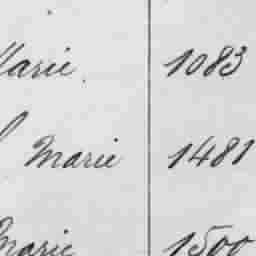 Marie. 1083
Marie 1481
Marie 1500